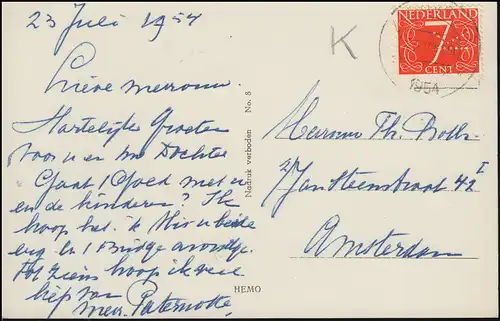 23 Juli 1954
Lieve mevrouw
Hartelijke Groeten
voor u en Dochter
Gaat 1 Goed met u
en de kinderen? Ik
hoop het.
1 Bridge
Tot ziens hoop ik vele
liefs van
mevr. Paternotte.
Nadruk verboden No. 8
HEMO
K
NEDERLAND
7
CENT
1954
Mevrouw Th.
Jan Steenstraat 42 I
Amsterdam